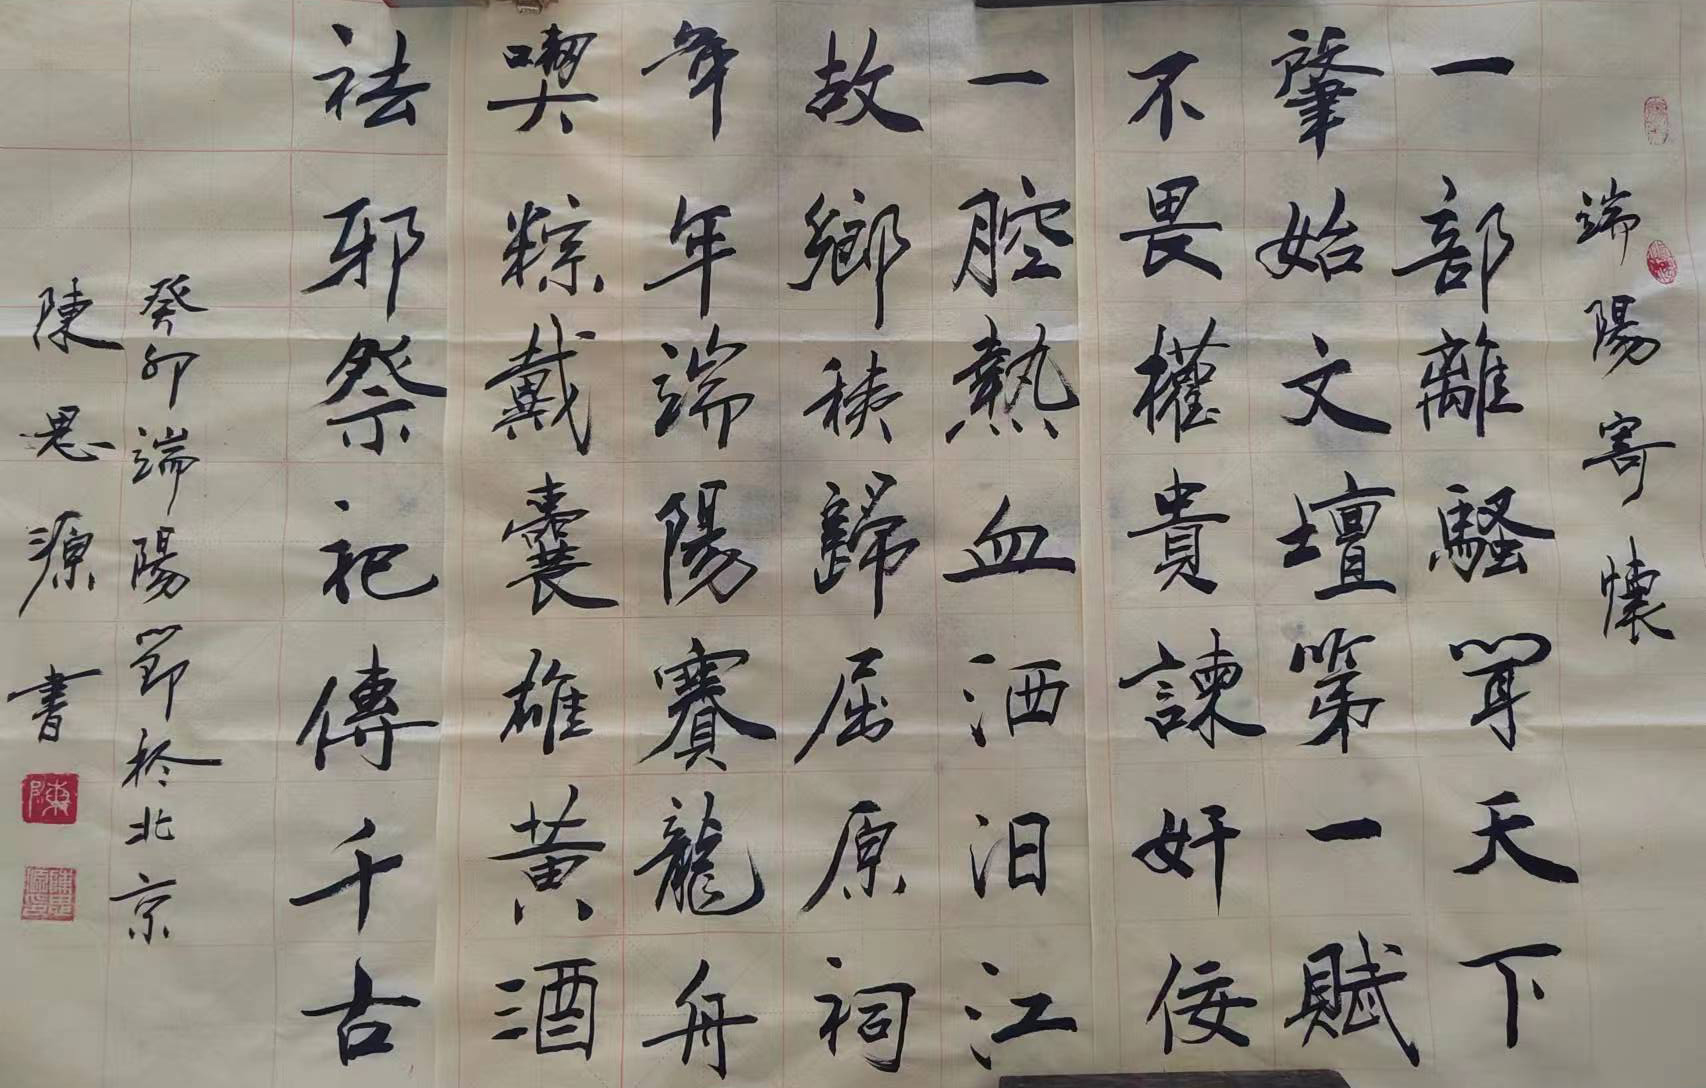 端陽寄懷
一部離騷聞天下
肇始文壇第一賦
不畏權貴諫奸佞
一腔熱血洒汨江
故鄉秭歸屈原祠
年年端陽賽龍舟
喫粽戴囊雄黃酒
祛邪祭祀傳千古
癸卯端陽節於北京
陳思源書
陳